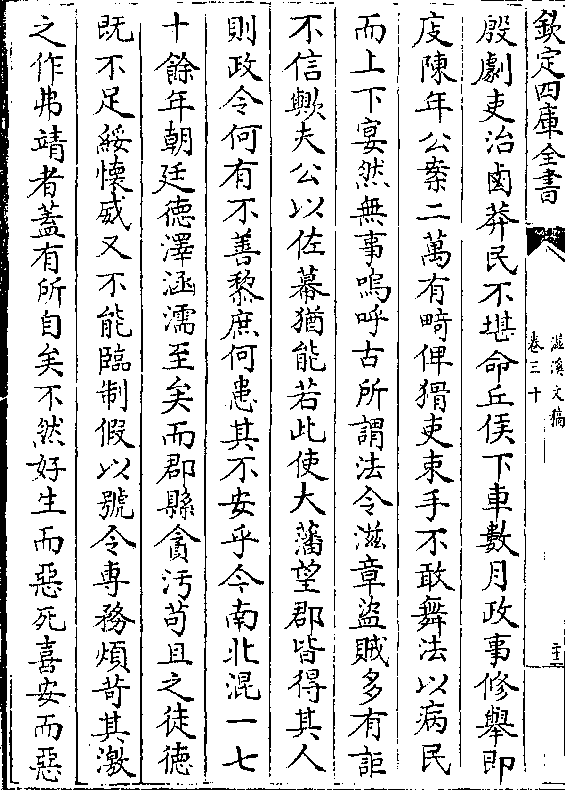 欽定四庫全書
滋溪文稿
卷三十
殷劇吏治鹵莽民不堪命丘侯下車數月政事修舉即
庋陳年公案二萬有畸俾猾吏束手不敢舞法以病民
而上下宴然無事嗚呼古所謂法令滋章盜賊多有詎
不信歟夫公以佐幕猶能若此使大藩望郡皆得其人
則政令何有不善黎庶何患其不安乎今南北混一七
十餘年朝廷德澤涵濡至矣而郡縣貪汚苟且之徒德
既不足綏懷威又不能臨制假以號令專務煩苛其激
之作弗靖者蓋有所自矣不然好生而惡死喜安而惡